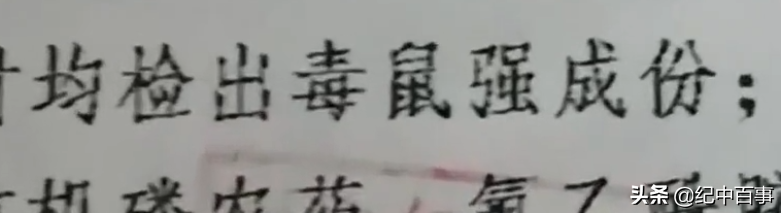 均检出毒鼠强成份;
机磷农药 氟乙酰
头条 @纪中百事